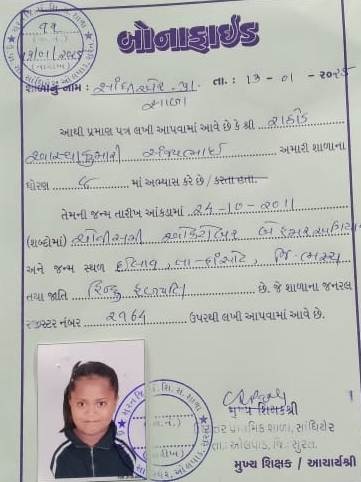 બોનાફાઈડ
શાળાનું નામ : સાંધીએર પ્રા. તા. : ૧૩ - ૦૧ - ૨૦૨૫
શાળા
આથી પ્રમાણ પત્ર લખી આપવામાં આવે છે કે શ્રી રાઠોડ
આસ્થાકુમારી સંજયભાઈ અમારી શાળાના
ધોરણ ૮ માં અભ્યાસ કરે છે / કરતા હતા.
તેમની જન્મ તારીખ આંકડામાં ૨૪-૧૦-૨૦૧૧
(શબ્દોમાં) ચોવીસમી ઓક્ટોબર બે હજાર અગિયાર
અને જન્મ સ્થળ તા-હાંસોટ, જિ-ભરૂચ
તથા જાતિ હિન્દુ હળપતિ છે. જે શાળાના જનરલ
રજીસ્ટર નંબર ૨૧૬૭ ઉપરથી લખી આપવામાં આવે છે.
મુખ્ય શિક્ષકશ્રી
પ્રાથમિક શાળા, સાંધીએર
તા. ઓલપાડ, જિ. સુરત.
મુખ્ય શિક્ષક / આચાર્યશ્રી